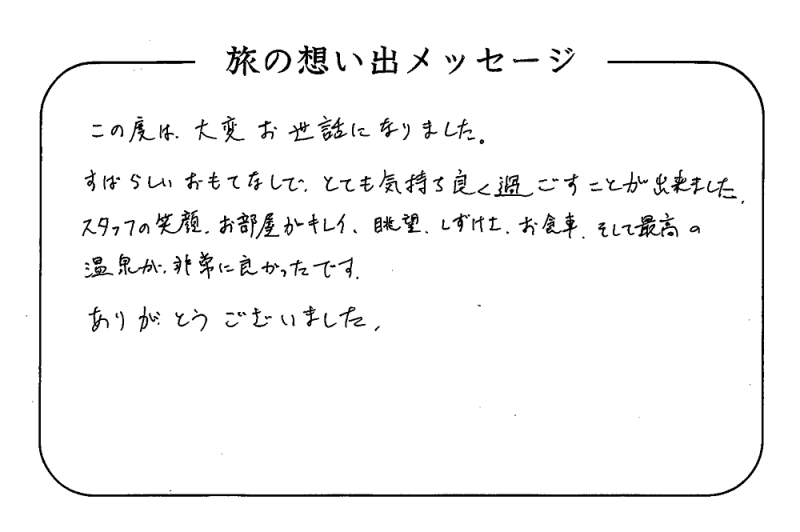 旅の想い出メッセージ
この度は、大変お世話になりました。
すばらしいおもてなしで、とても気持ち良く過ごすことが出来ました。
スタッフの笑顔、お部屋がキレイ、眺望、しずけさ、お食事、そして最高の
温泉が、非常に良かったです。
ありがとうございました。